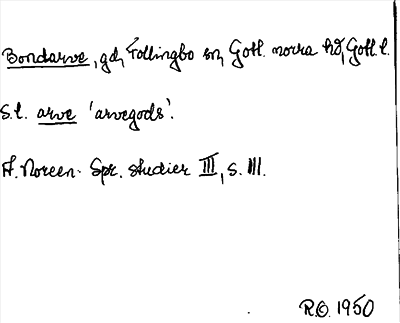 Bondarve, gd, Follingbo sn, Gotl. norra hd, Gotl. l.
S.l. arve 'arvegods'.
A. Noreen. Spr. studier III, s. 111.
R.O. 1950